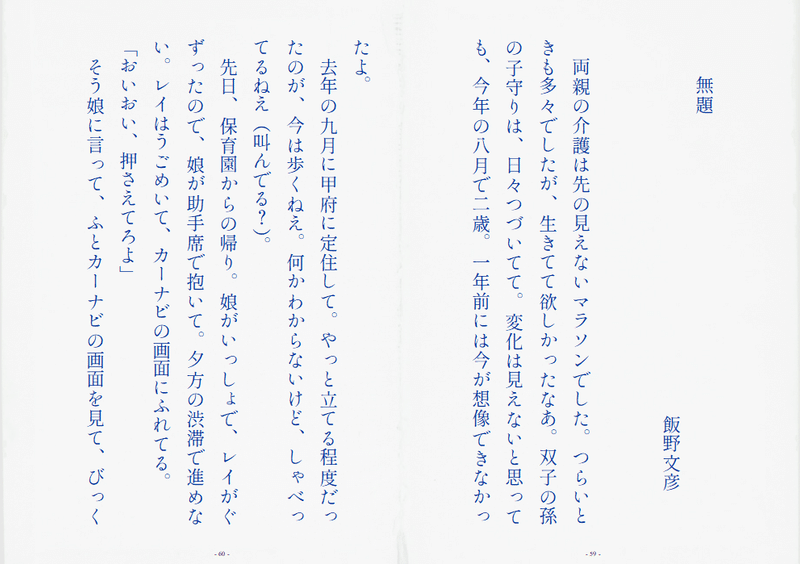 無題
飯野文彦
両親の介護は先の見えないマラソンでした。つらいと
きも多々でしたが、生きてて欲しかったなあ。双子の孫
の子守りは、日々つづいてて。変化は見えないと思って
も、今年の八月で二歳。一年前には今が想像できなかっ
- 59 -
たよ。
去年の九月に甲府に定住して。やっと立てる程度だっ
たのが、今は歩くねえ。何かわからないけど、しゃべっ
てるねえ（叫んでる？）。
先日、保育園からの帰り。娘がいっしょで、レイがぐ
ずったので、娘が助手席で抱いて。夕方の渋滞で進めな
い。レイはうごめいて、カーナビの画面にふれてる。
「おいおい、押さえてろよ」
そう娘に言って、ふとカーナビの画面を見て、びっく
- 60 -